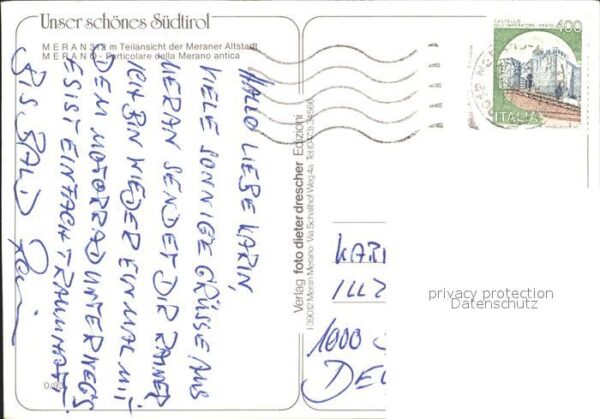 Unser schönes Südtirol
MERAN 312 m Teilansicht der Meraner Altstadt
MERANO - Particolare della Merano antica
HALLO LIEBE KARIN,
VIELE SONNIGE GRÜSSE AUS
MERAN SENDET DIR RAINER
ICH BIN WIEDER EINMAL MIT
DEM MOTORRAD UNTERWEGS
ES IST EINFACH TRAUMHAFT
BIS BALD
Verlag foto dieter drescher Edizioni
I 39012 Meran Merano · Via Schaffhof Weg 4a
CASTELLO
DELL'IMPERATORE - PRATO
400
ITALIA
KARI
1000
DEU
privacy protection
Datenschutz